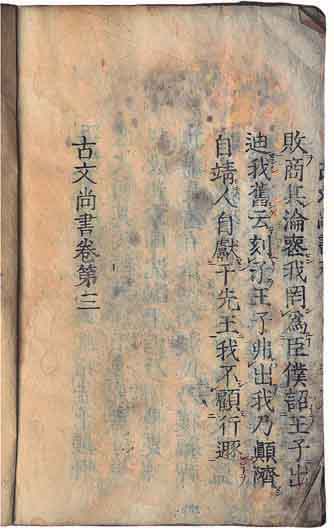 敗商其淪喪我罔爲臣僕詔王子出
迪我舊云刻子王子弗出我乃顛隮
自靖人自獻于先王我不顧行遯
古文尚書卷第三